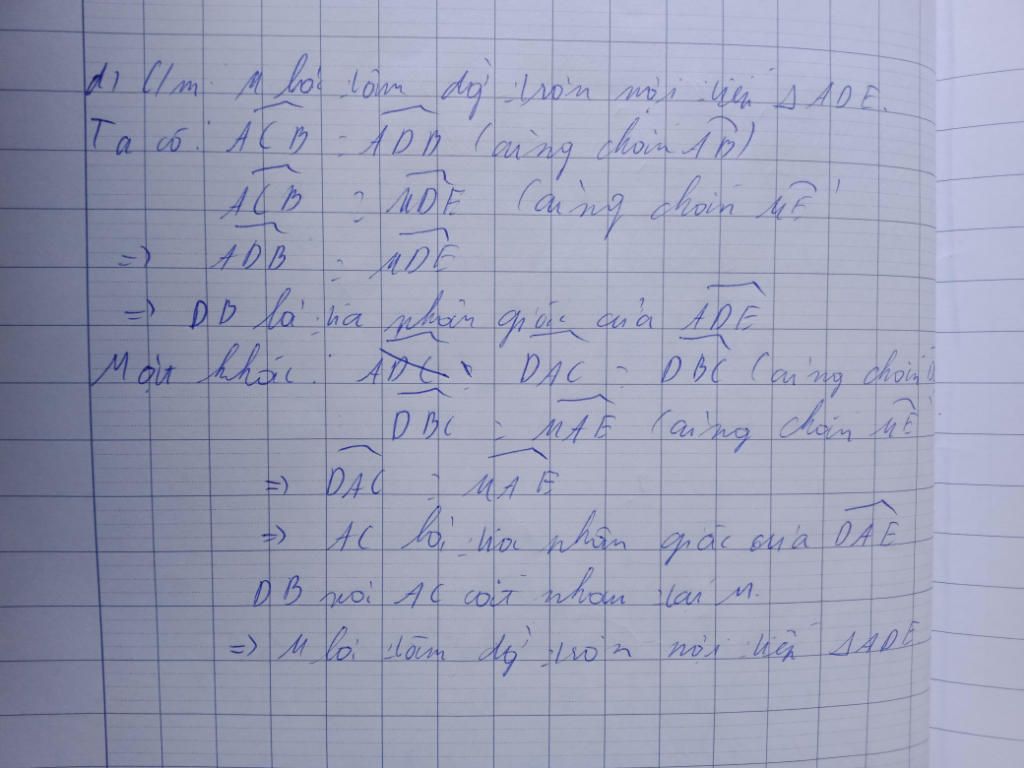 d) C/m: M là tâm đg tròn nội tiếp ΔADE.
Ta có: ACB = ADB (cùng chắn AB)
ACB = MDE (cùng chắn ME
=) ADB = MDE
=) DB là tia phân giác của ADE
Mặt khác: ADC DAC = DBC (cùng chắn
DBC = MAE (cùng chắn ME
=) DAC = MAE
=) AC là tia phân giác của DAE
DB với AC cắt nhau tại M.
=) M là tâm đg tròn nội tiếp ΔADE